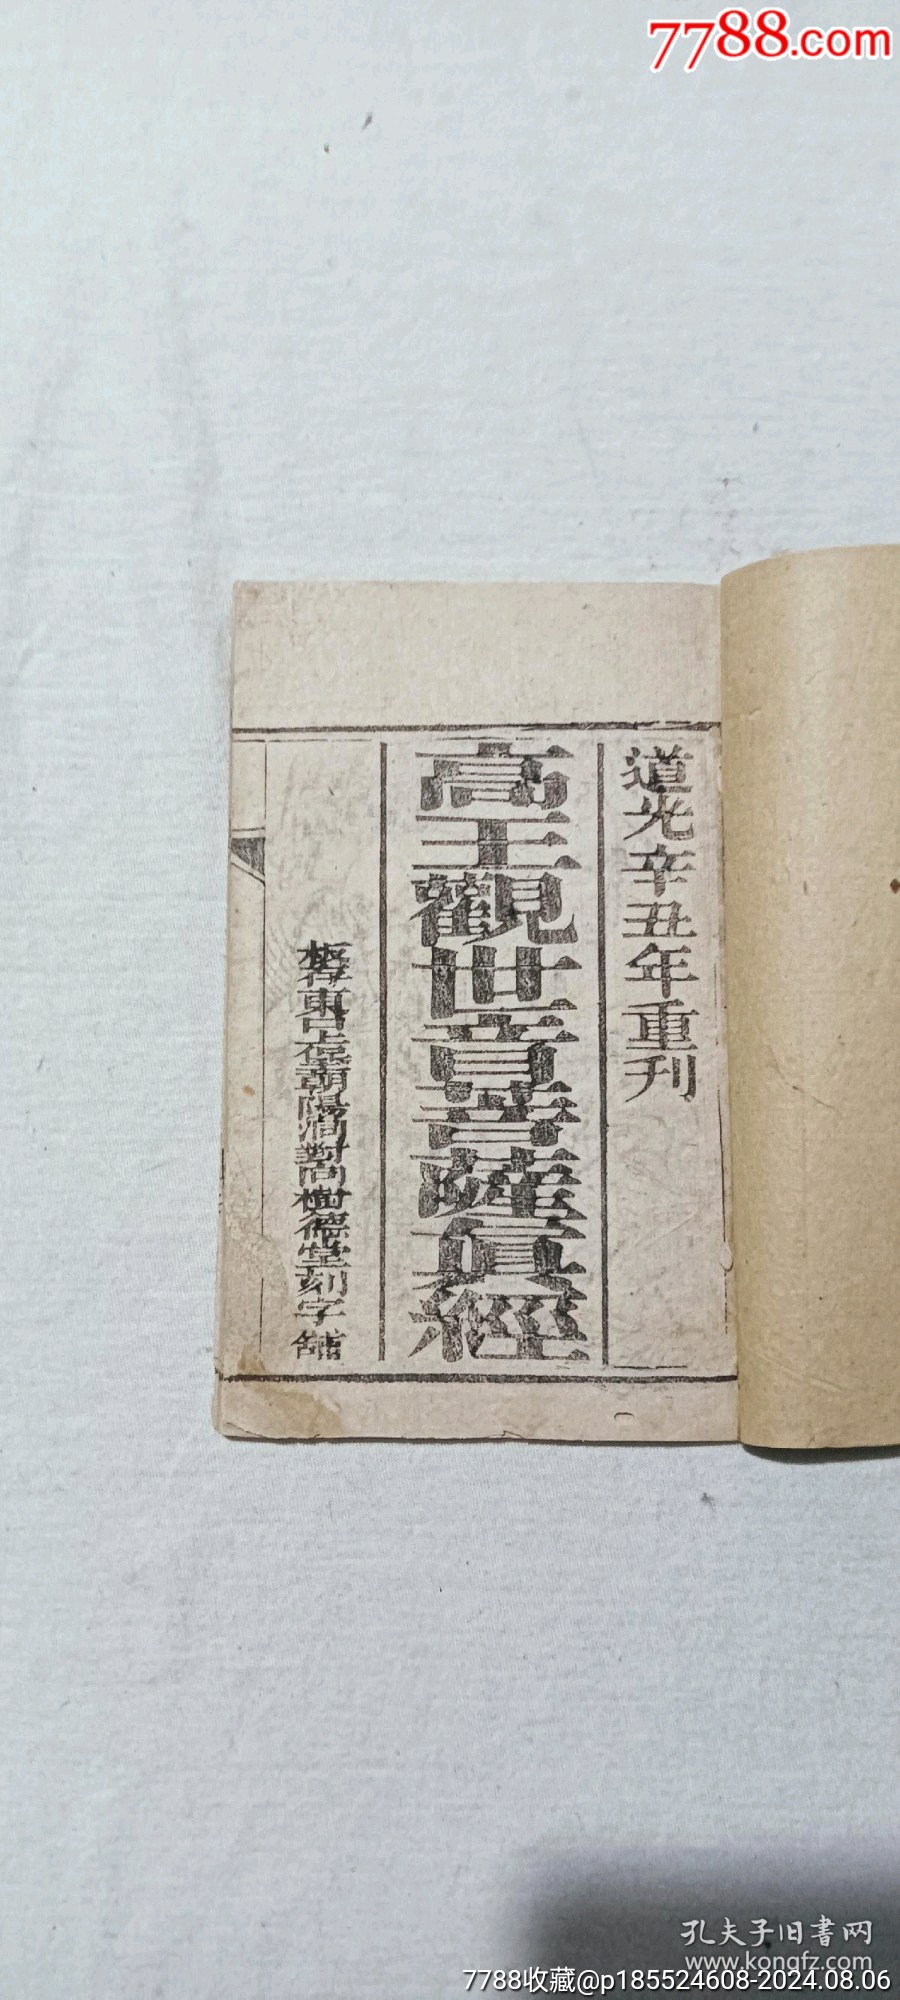 7788.com
道光辛丑年重刊
高王觀世音菩薩真經
板存東口上堡朝陽洞對向樹德堂刻字舖
孔夫子旧书网
www.kongfz.com
7788收藏@p185524608-2024.08.06